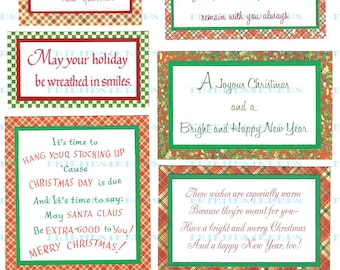 remain with you always.
May your holiday
be wreathed in smiles.
A Joyous Christmas
and a
Bright and Happy New Year
It's time to
HANG YOUR STOCKING UP
'Cause
CHRISTMAS DAY is due
And It's time to say:
May SANTA CLAUS
Be EXTRA-GOOD to You!
MERRY CHRISTMAS!
These wishes are especially warm
Because they're meant for you—
Have a bright and merry Christmas
And a happy New Year, too!